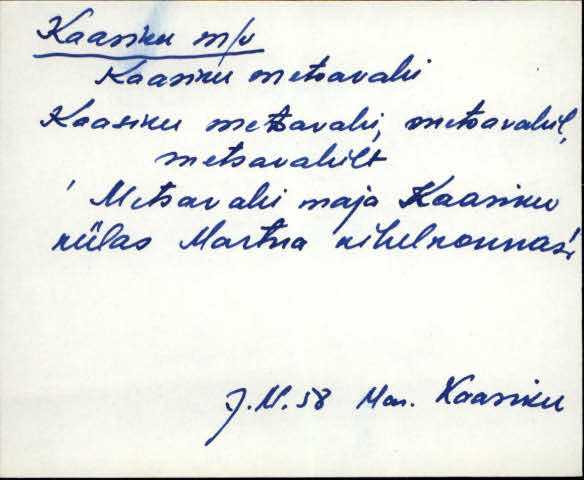 Kaasiku m/v
Kaasiku metsavahi
Kaasiku metsavahi, metsavahil,
metsavahilt
Metsavahi maja Kaasiku
külas Martna kihelkonnas.
J.M. 58 Mar. Kaasiku